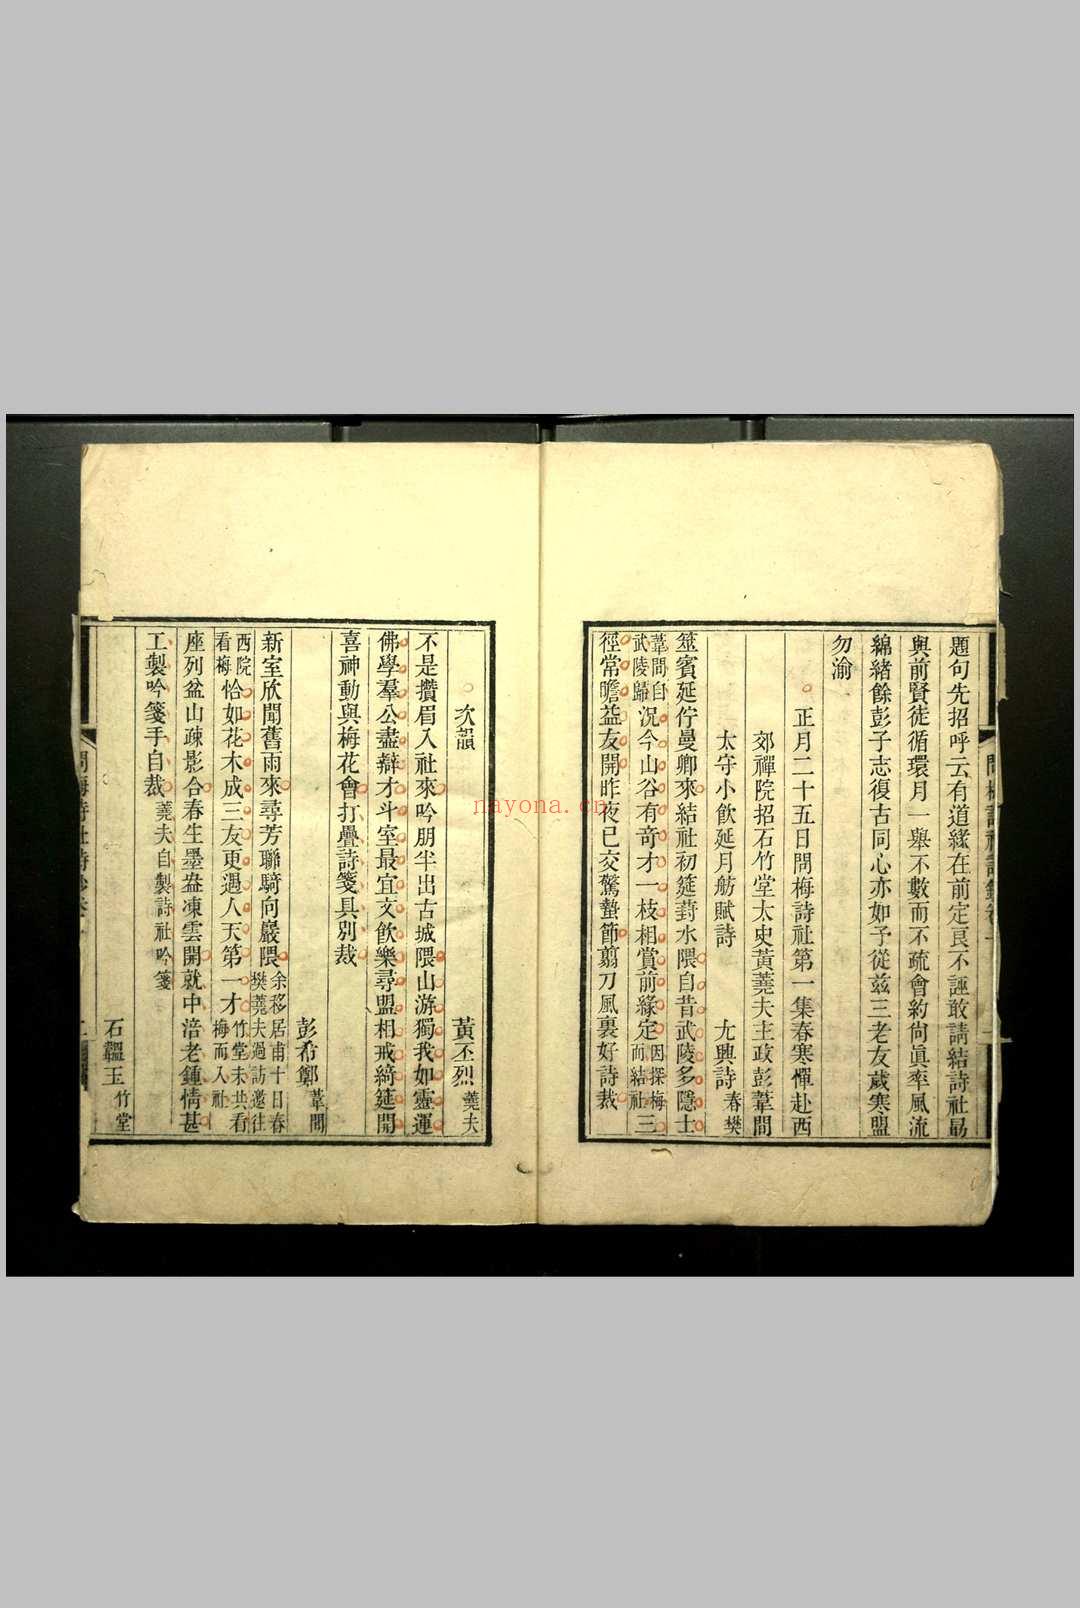 題句先招呼云有道緣在前定良不誣敢請結詩社勗
與前賢徒循環月一舉不數而不疏會約尙眞率風流
綿緒餘彭子志復古同心亦如予從茲三老友歲寒盟
勿渝
正月二十五日問梅詩社第一集春寒憚赴西
郊禪院招石竹堂太史黃蕘夫主政彭葦間
太守小飲延月舫賦詩 尤興詩 春樊
筵賓延佇曼卿來結社初筵葑水隈自昔武陵多隱士
葦間自武陵歸 况今山谷有奇才一枝相賞前緣定 因探梅而結社 三
徑常瞻益友開昨夜已交驚蟄節翦刀風裏好詩裁
次韻 黃丕烈 蕘夫
不是攢眉入社來吟朋半出古城隈山游獨我如靈運
佛學羣公盡辯才斗室最宜文飲樂尋盟相戒綺筵開
喜神動與梅花會打疊詩箋具別裁
彭希鄭 葦間
新室欣聞舊雨來尋芳聯騎向巖隈 余移居甫十日春樊蕘夫過訪邀往
西院看梅 恰如花木成三友更遇人天第一才 竹堂未共看梅而入社
座列盆山疎影合春生墨盎凍雲開就中涪老鍾情甚
工製吟箋手自裁 蕘夫自製詩社吟箋
石韞玉 竹堂
問梅詩社詩鈔卷一
nayona.cn